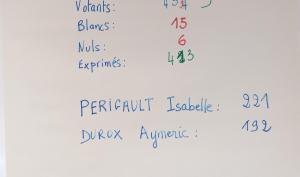 Votants:
Blancs: 15
Nuls: 6
Exprimés: 413
PERIGAULT Isabelle: 221
DUROX Aymeric: 192